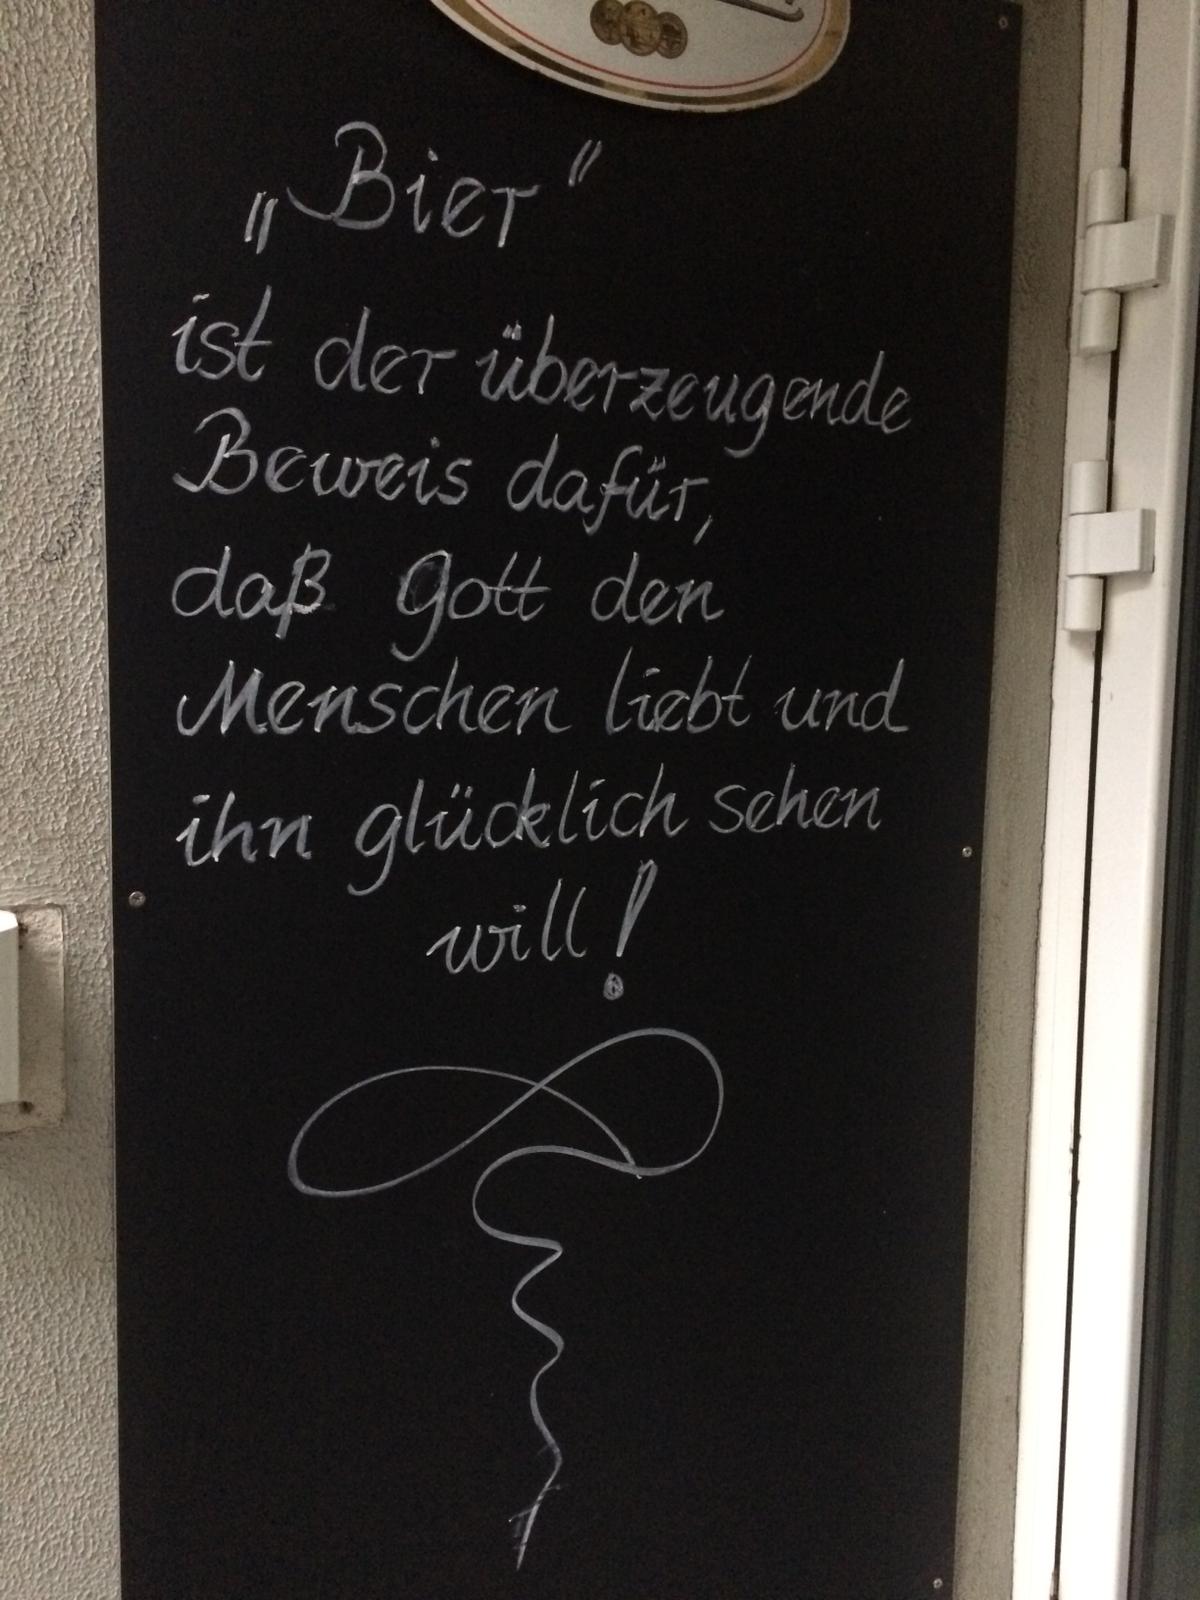 „Bier"
ist der überzeugende
Beweis dafür,
daß Gott den
Menschen liebt und
ihn glücklich sehen
will!